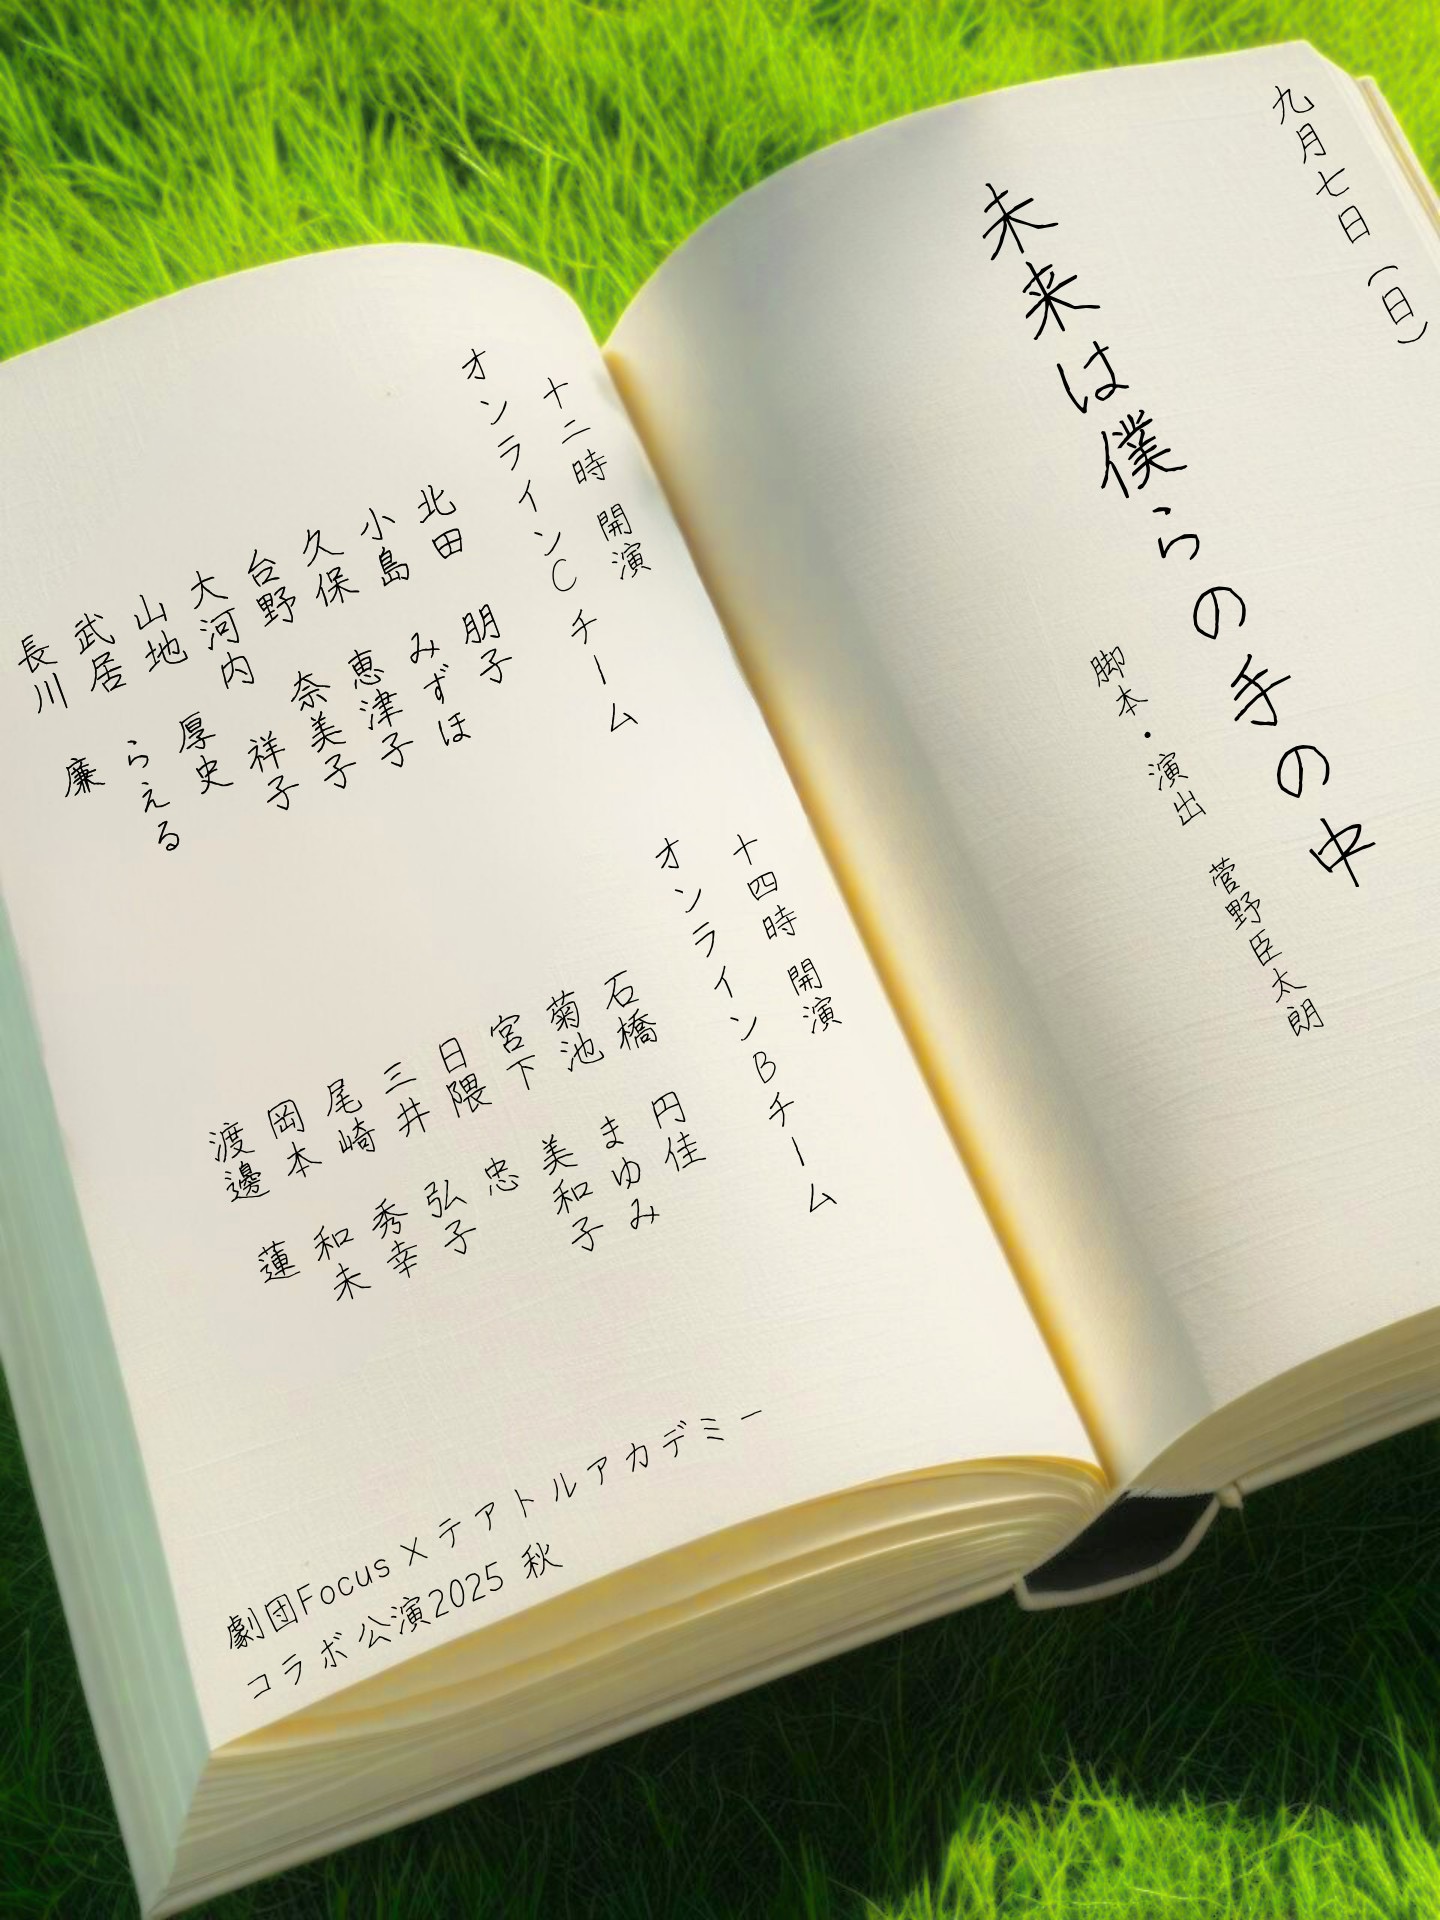 九月七日（日）
未来は僕らの手の中
脚本・演出　菅野臣太朗
十二時 開演
オンラインCチーム
北田　朋子
小島　みずほ
久保　恵津子
台野　奈美子
大河内　祥子
山地　厚史
武居　らえる
長川　廉
十四時 開演
オンラインBチーム
石橋　円佳
菊池　まゆみ
宮下　美和子
日隈　忠
三井　弘子
尾崎　秀幸
岡本　和未
渡邊　蓮
劇団Focus×テアトルアカデミー
コラボ公演2025 秋